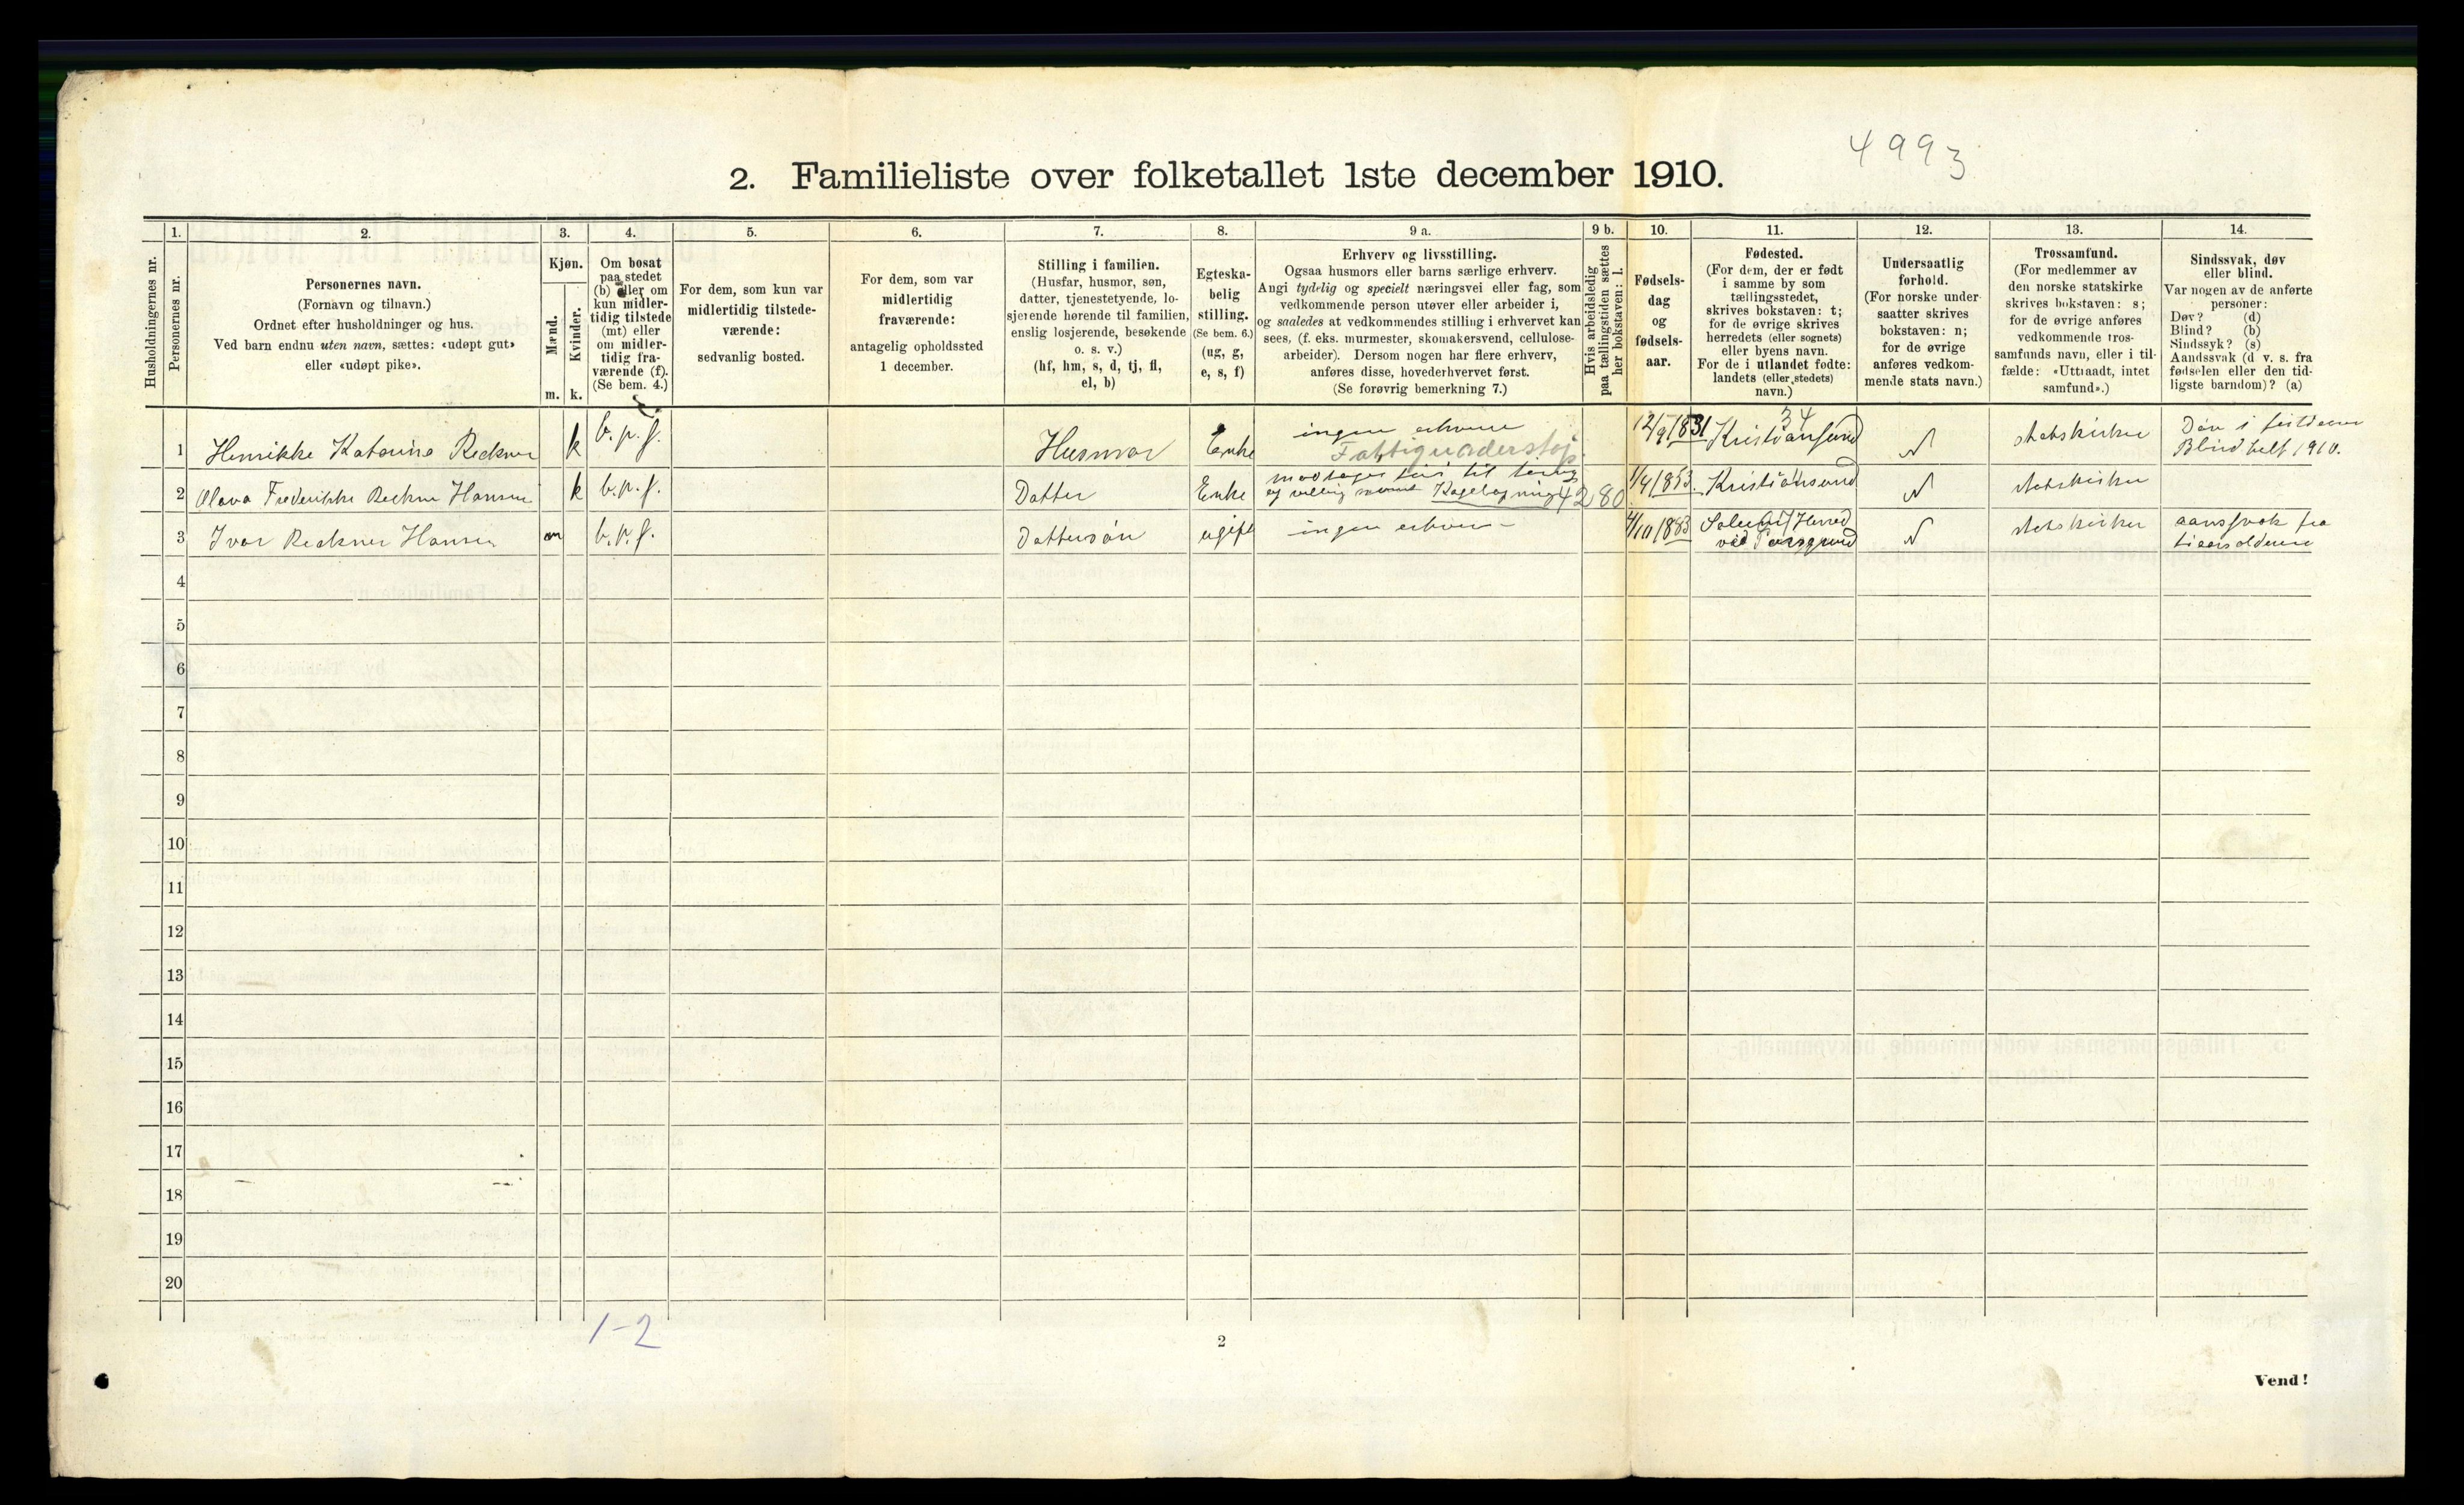 4993
2. Familieliste over folketallet 1ste december 1910.
Husholdningernes nr.
1.
Personernes nr.
2.
Personernes navn.
(Fornavn og tilnavn.)
Ordnet efter husholdninger og hus.
Ved barn endnu uten navn, sættes: «udøpt gut»
eller «udøpt pike».
3.
Kjøn.
Mænd.
Kvinder.
m. k.
4.
Om bosat
paa stedet
(b) eller om
kun midler-
tidig tilstede
(mt) eller
om midler-
tidig fra-
værende (f).
(Se bem. 4.)
5.
For dem, som kun var
midlertidig tilstede-
værende:
sedvanlig bosted.
6.
For dem, som var
midlertidig
fraværende:
antagelig opholdssted
1 december.
7.
Stilling i familien.
(Husfar, husmor, søn,
datter, tjenestetyende, lo-
sjerende hørende til familien,
enslig losjerende, besøkende
o. s. v.)
(hf, hm, s, d, tj, fl,
el, b)
8.
Egteska-
belig
stilling.
(Se bem. 6.)
(ug, g,
e, s, f)
9 a.
Erhverv og livsstilling.
Ogsaa husmors eller barns særlige erhverv.
Angi tydelig og specielt næringsvei eller fag, som
vedkommende person utøver eller arbeider i,
og saaledes at vedkommendes stilling i erhvervet kan
sees, (f. eks. murmester, skomakersvend, cellulose-
arbeider). Dersom nogen har flere erhverv,
anføres disse, hovederhvervet først.
(Se forøvrig bemerkning 7.)
9 b.
Hvis arbeidsledig
paa tællingstiden sættes
her bokstaven: l.
10.
Fødsels-
dag
og
fødsels-
aar.
11.
Fødested.
(For dem, der er født
i samme by som
tællingsstedet,
skrives bokstaven: t;
for de øvrige skrives
herredets (eller sognets)
eller byens navn.
For de i utlandet fødte:
landets (eller stedets)
navn.)
12.
Undersaatlig
forhold.
(For norske under-
saatter skrives
bokstaven: n;
for de øvrige
anføres vedkom-
mende stats navn.)
13.
Trossamfund.
(For medlemmer av
den norske statskirke
skrives bokstaven: s;
for de øvrige anføres
vedkommende tros-
samfunds navn, eller i til-
fælde: «Uttraadt, intet
samfund».)
14.
Sindssvak, døv
eller blind.
Var nogen av de anførte
personer:
Døv? (d)
Blind? (b)
Sindssyk? (s)
Aandssvak (d v. s. fra
fødselen eller den tid-
ligste barndom)? (a)
1 Henrikke Katarina k b.p.f. Husmor Enke ingen erhverv 12/9 1831 34 Kristiansund N statskirken Døv i
Fattigunderstøt. Blind helt 1910.
2 Olava Frederikke Hansen k b.p.f. Datter Enke til 4280 1/4 1853. Kristiansund N statskirken
3 Ivar Hansen m b.p.f. Dattersøn ugift ingen erhverv 4/10 1883 Herred N statskirken fra
ved Porsgrund
4
5
6
7
8
9
10
11
12
13
14
15
16
17
18
19
20
1-2
2
Vend!